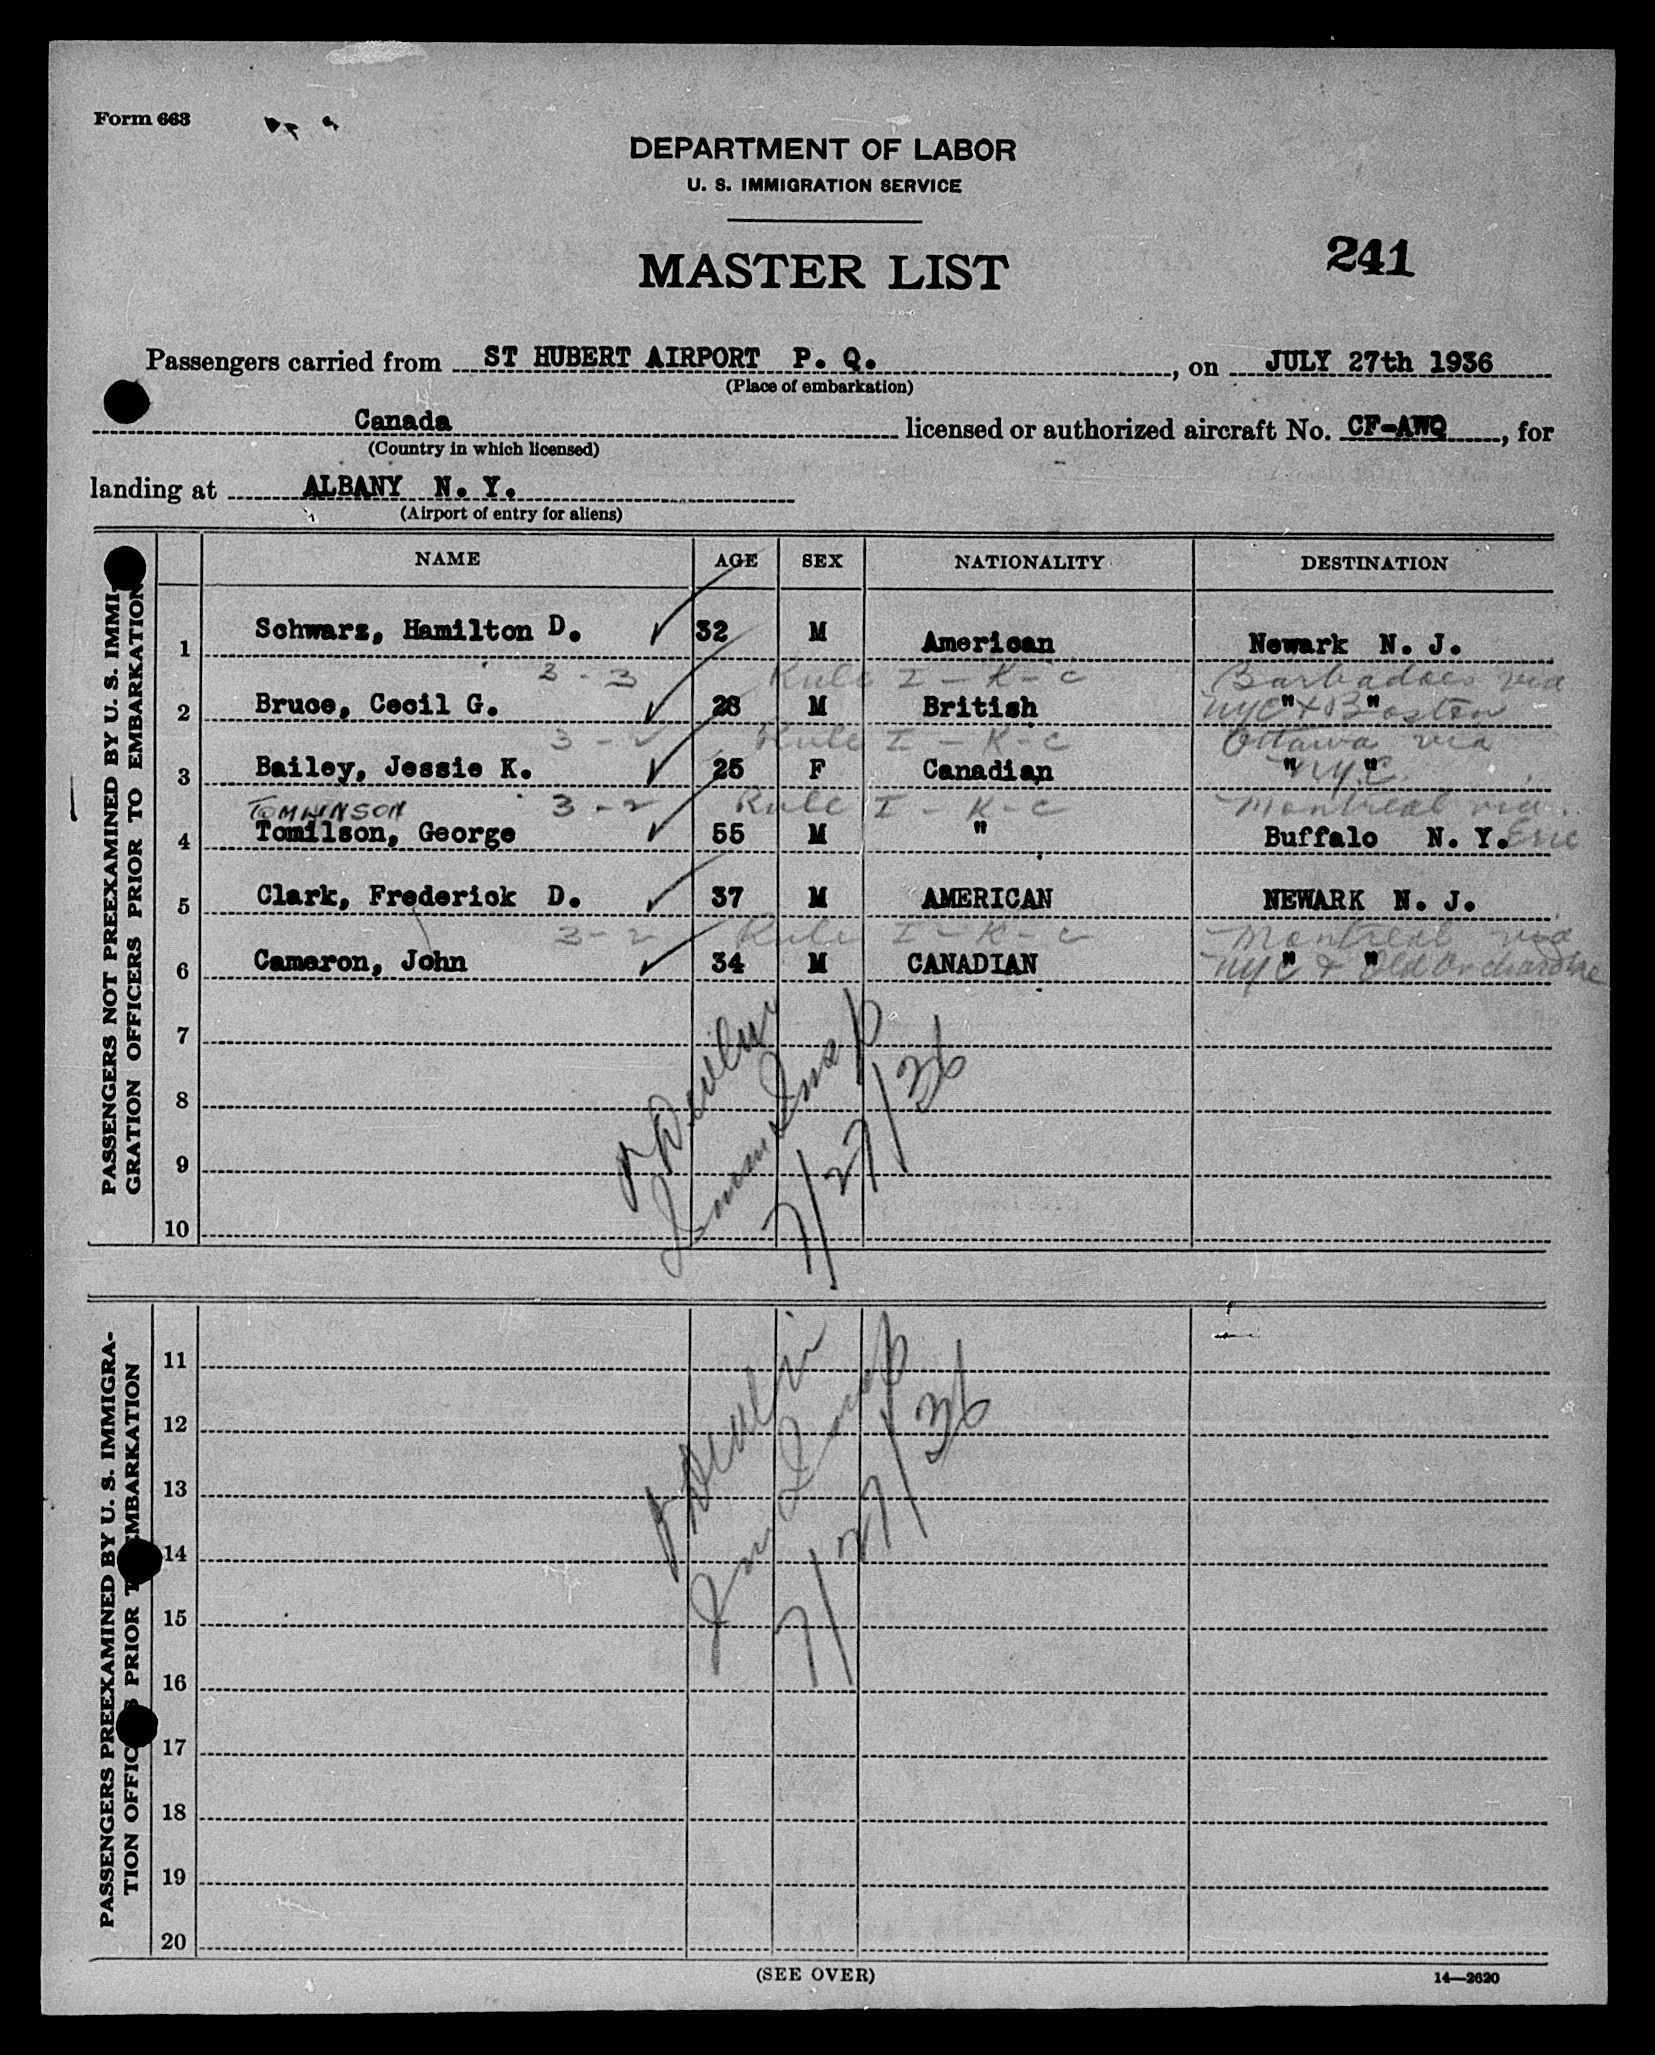 Form 663
DEPARTMENT OF LABOR
U. S. IMMIGRATION SERVICE
MASTER LIST
241
Passengers carried from ST HUBERT AIRPORT P. Q. , on JULY 27th 1936
(Place of embarkation)
Canada licensed or authorized aircraft No. CF-AWQ , for
(Country in which licensed)
landing at ALBANY N. Y.
(Airport of entry for aliens)
PASSENGERS NOT PREEXAMINED BY U. S. IMMI-
GRATION OFFICERS PRIOR TO EMBARKATION
NAME AGE SEX NATIONALITY DESTINATION
1 Schwarz, Hamilton D. 32 M American Newark N. J.
3 - 3 Rule I - K - c Barbadoes via
2 Bruce, Cecil G. 28 M British " " NYC + Boston
3 - 2 Rule I - K - c Ottawa via
3 Bailey, Jessie K. 25 F Canadian " " NYC
TOMLINSON 3 - 2 Rule I - K - c Montreal via
4 Tomilson, George 55 M " Buffalo N. Y. Erie
5 Clark, Frederick D. 37 M AMERICAN NEWARK N. J.
3 - 2 Rule I - K - c Montreal via
6 Cameron, John 34 M CANADIAN " " NYC & Old Orchard Me
7
8
9
10
Insp
7/27/36
PASSENGERS PREEXAMINED BY U. S. IMMIGRA-
TION OFFIC S PRIOR T EMBARKATION
11
12
13
14
15
16
17
18
19
20
7/27/36
(SEE OVER)
14—2620